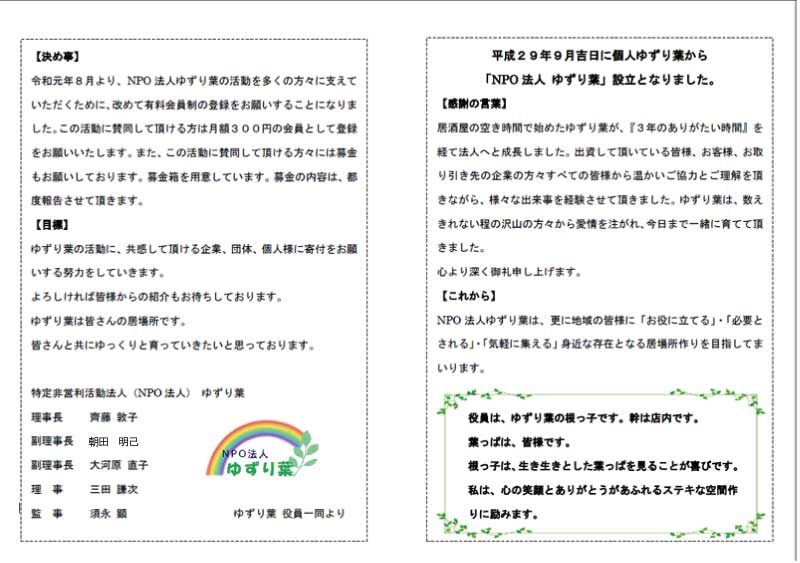 【決め事】
令和元年８月より、NPO 法人ゆずり葉の活動を多くの方々に支えて
いただくために、改めて有料会員制の登録をお願いすることになりま
した。この活動に賛同して頂ける方は月額３００円の会員として登録
をお願いいたします。また、この活動に賛同して頂ける方々には募金
もお願いしております。募金箱を用意しています。募金の内容は、都
度報告させて頂きます。
【目標】
ゆずり葉の活動に、共感して頂ける企業、団体、個人様に寄付をお願
いする努力をしていきます。
よろしければ皆様からの紹介もお待ちしております。
ゆずり葉は皆さんの居場所です。
皆さんと共にゆっくりと育っていきたいと思っております。
特定非営利活動法人（NPO 法人） ゆずり葉
理事長 齊藤 敦子
副理事長 朝田 明己
副理事長 大河原 直子
理 事 三田 謙次
監 事 須永 顕
ゆずり葉 役員一同より
NPO法人
ゆずり葉
平成２９年９月吉日に個人ゆずり葉から
「NPO 法人 ゆずり葉」設立となりました。
【感謝の言葉】
居酒屋の空き時間で始めたゆずり葉が、『３年のありがたい時間』を
経て法人へと成長しました。出資して頂いている皆様、お客様、お取
り引き先の企業の方々すべての皆様から温かいご協力とご理解を頂
きながら、様々な出来事を経験させて頂きました。ゆずり葉は、数え
きれない程の沢山の方々から愛情を注がれ、今日まで一緒に育てて頂
きました。
心より深く御礼申し上げます。
【これから】
NPO 法人ゆずり葉は、更に地域の皆様に「お役に立てる」・「必要と
される」・「気軽に集える」身近な存在となる居場所作りを目指してま
いります。
役員は、ゆずり葉の根っ子です。幹は店内です。
葉っぱは、皆様です。
根っ子は、生き生きとした葉っぱを見ることが喜びです。
私は、心の笑顔とありがとうがあふれるステキな空間作
りに励みます。